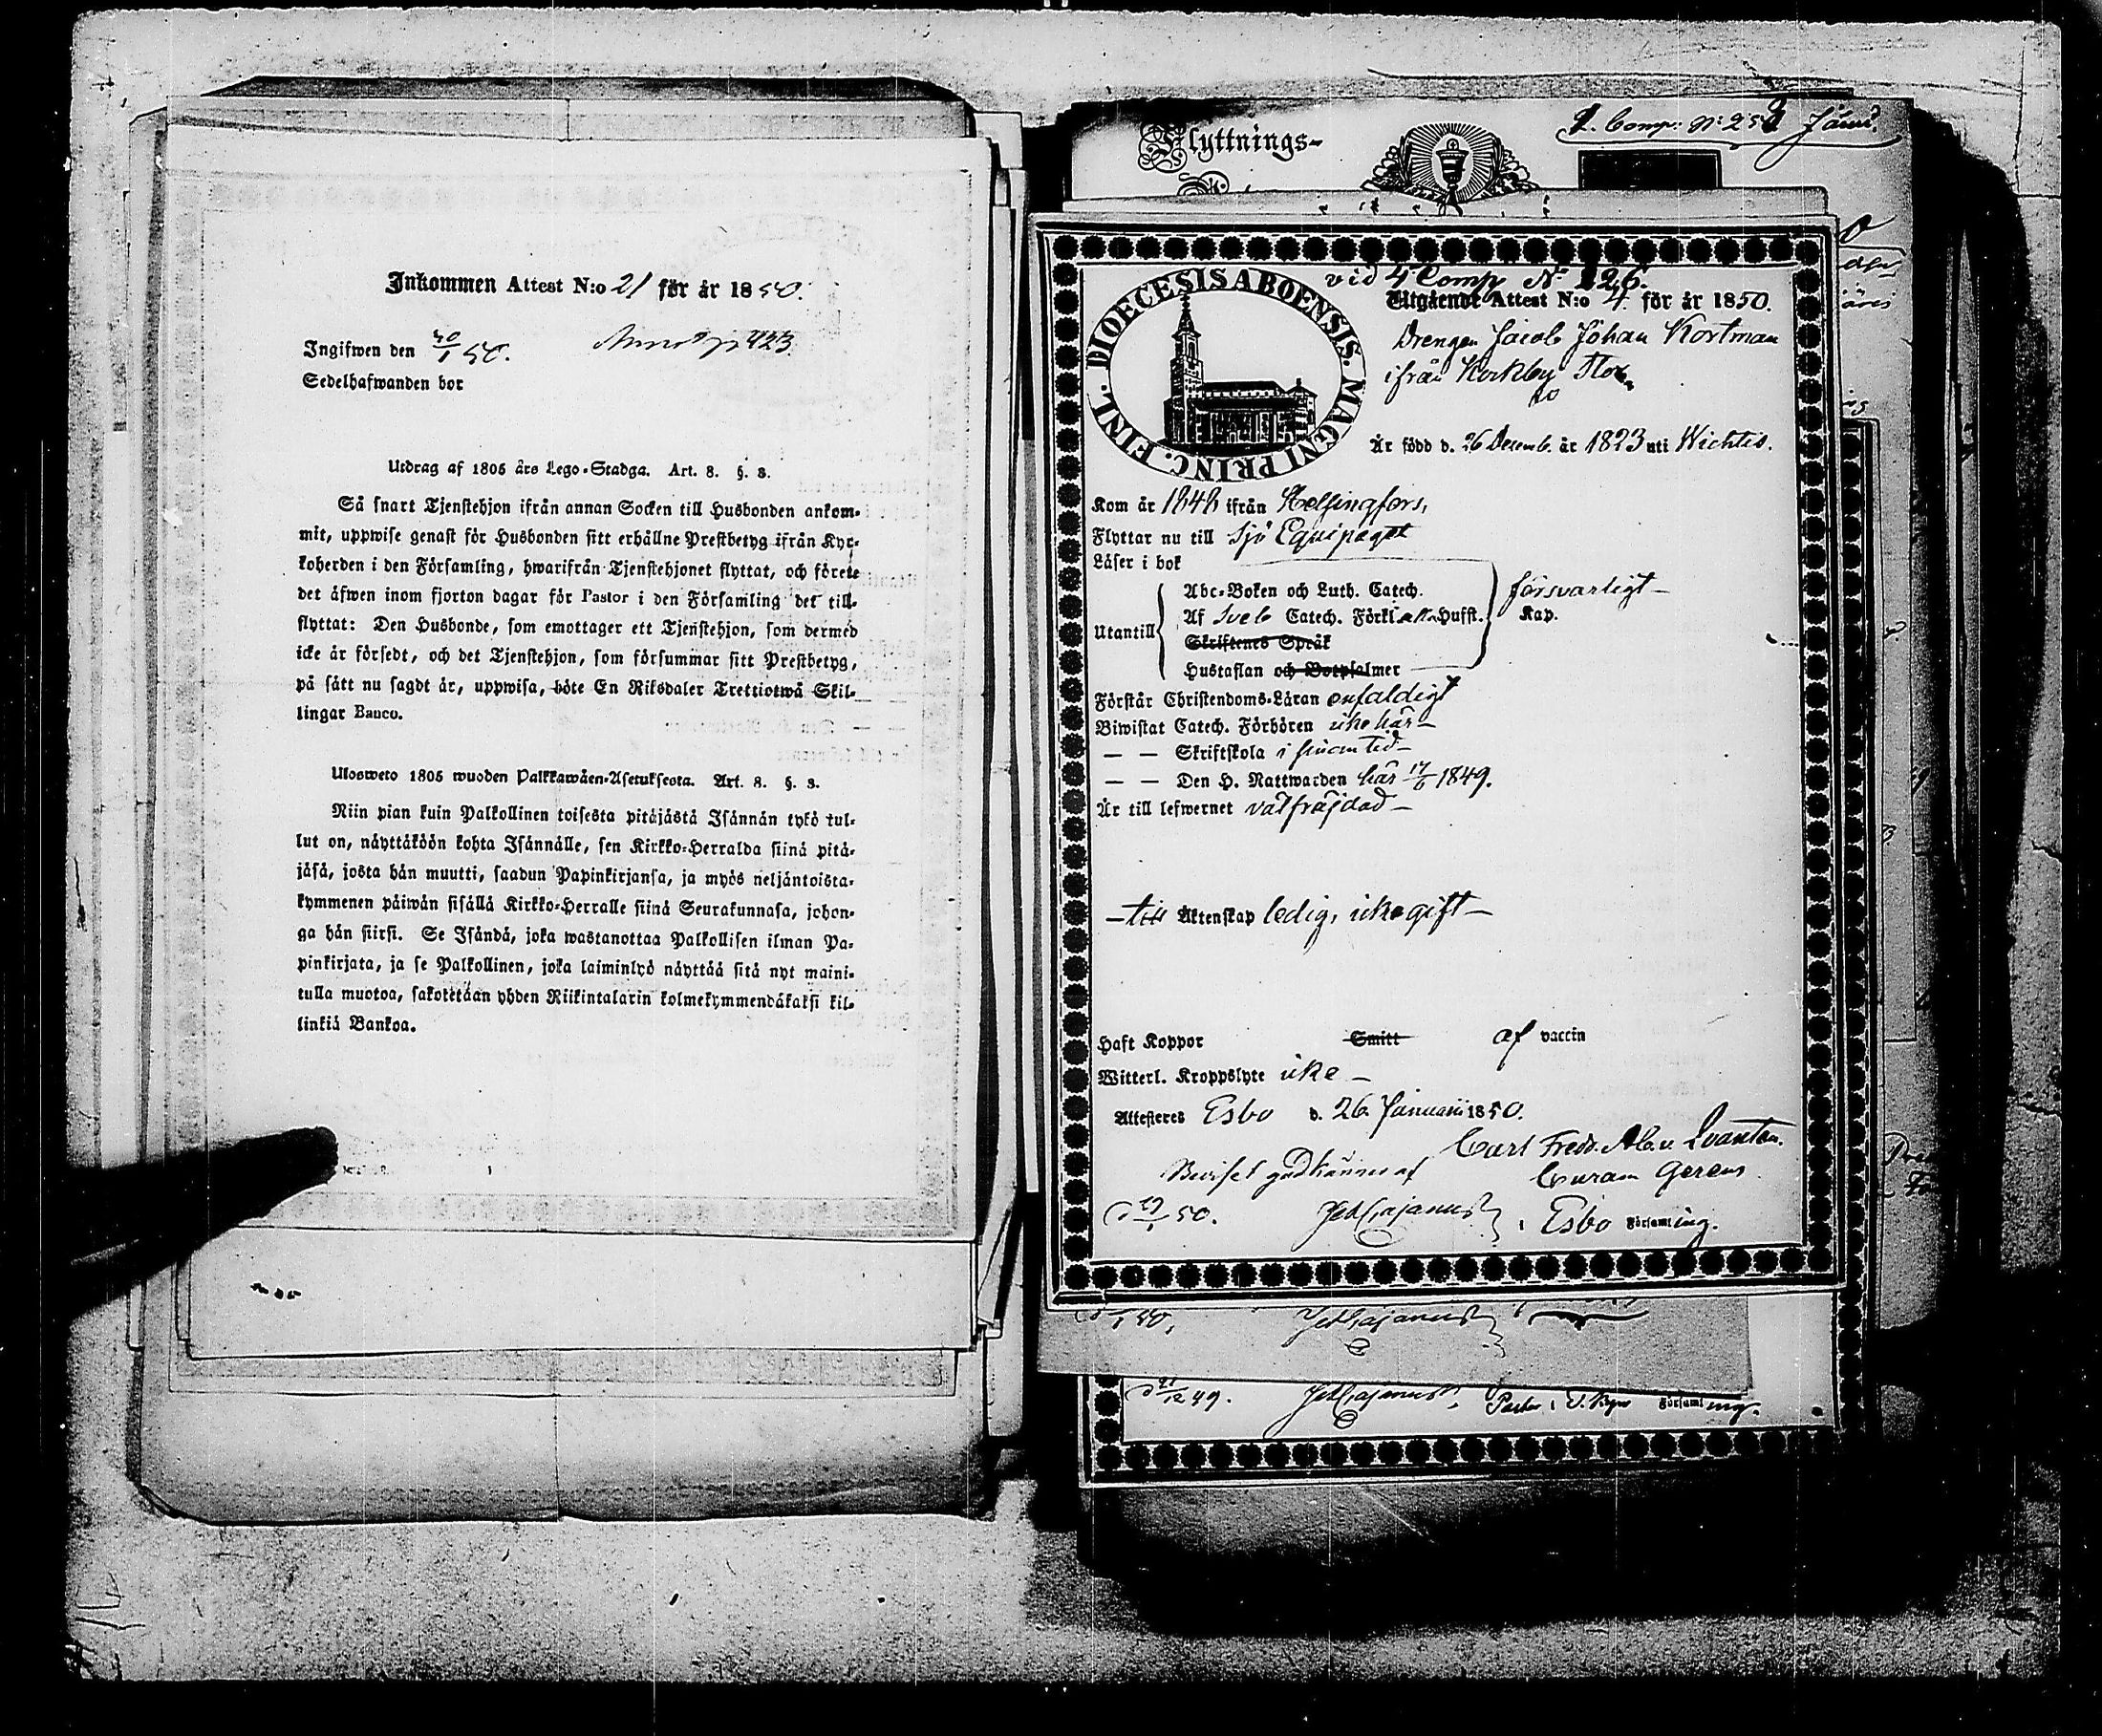 Inkommen Attest N:o 21 för år 1850.
Ingifwen den 30/1 50.
Sedelhafwanden bor
Utdrag af 1805 års Lego-Stadga. Art. 8. §. 3.
Så snart Tjenstehjon ifrån annan Socken till Husbonden ankom-
mit, uppwise genast för Husbonden sitt erhållne Prestbetyg ifrån Kyr-
koherden i den Församling, hwarifrån Tjenstehjonet flyttat, och förete
det äfwen inom fjorton dagar för Pastor i den Församling det till-
flyttat: Den Husbonde, som emottager ett Tjenstehjon, som dermed
icke är försedt, och det Tjenstehjon, som försummar sitt Prestbetyg,
på sätt nu sagdt är, uppwisa, böte En Riksdaler Trettiotwå Skil-
lingar Banco.
Ulosweto 1805 wuoden Palkkawäen-Asetuksesta. Art. 8. §. 3.
Niin pian kuin Palkollinen toisesta pitäjästä Isännän tykö tul-
lut on, näyttäköön kohta Isännälle, sen Kirkko-Herralda siinä pitä-
jäsä, josta hän muutti, saadun Papinkirjansa, ja myös neljäntoista-
kymmenen päiwän sisällä Kirkko-Herralle siinä Seurakunnasa, johon-
ga hän siirsi. Se Isändä, joka wastanottaa Palkollisen ilman Pa-
pinkirjata, ja se Palkollinen, joka laiminlyö näyttää sitä nyt maini-
tulla muotoa, sakotetaan yhden Riikintalarin kolmekymmendäkaksi kil-
linkiä Bankoa.
Flyttnings-
2. Comp: N:
DIOECESIS ABOENSIS. MAGNI PRINC. FINL.
vid 4 Comp N: 126.
Utgående Attest N:o 4. för år 1850.
Drengen Jacob Johan Kortman
ifrån Kockby
Är född d. 26 Decemb. år 1823 uti Wichtis.
Kom år 1848 ifrån Helsingfors,
Flyttar nu till Sjö Equipaget
Läser i bok
Abc-Boken och Luth. Catech. försvarligt
Utantill Af Sveb Catech. Förkl Husst. Kap.
Skriftenes Språk
Hustaflan och Botpsalmer
Förstår Christendoms-Läran enfaldigt
Biwistat Catech. Förhören icke här
— — Skriftskola i sinom tid
— — Den H. Nattwarden här 17/6 1849.
Är till lefwernet välfräjdad
— till Äktenskap ledig, icke gift —
Haft Koppor Smitt af vaccin
Witterl. Kroppslyte icke
Attesteres Esbo d. 26. Januarii 1850.
Carl Fredr. Alex.
Beviset godkännes af Curam Gerens
d 29/1 50. i Esbo Församling.
Församling.